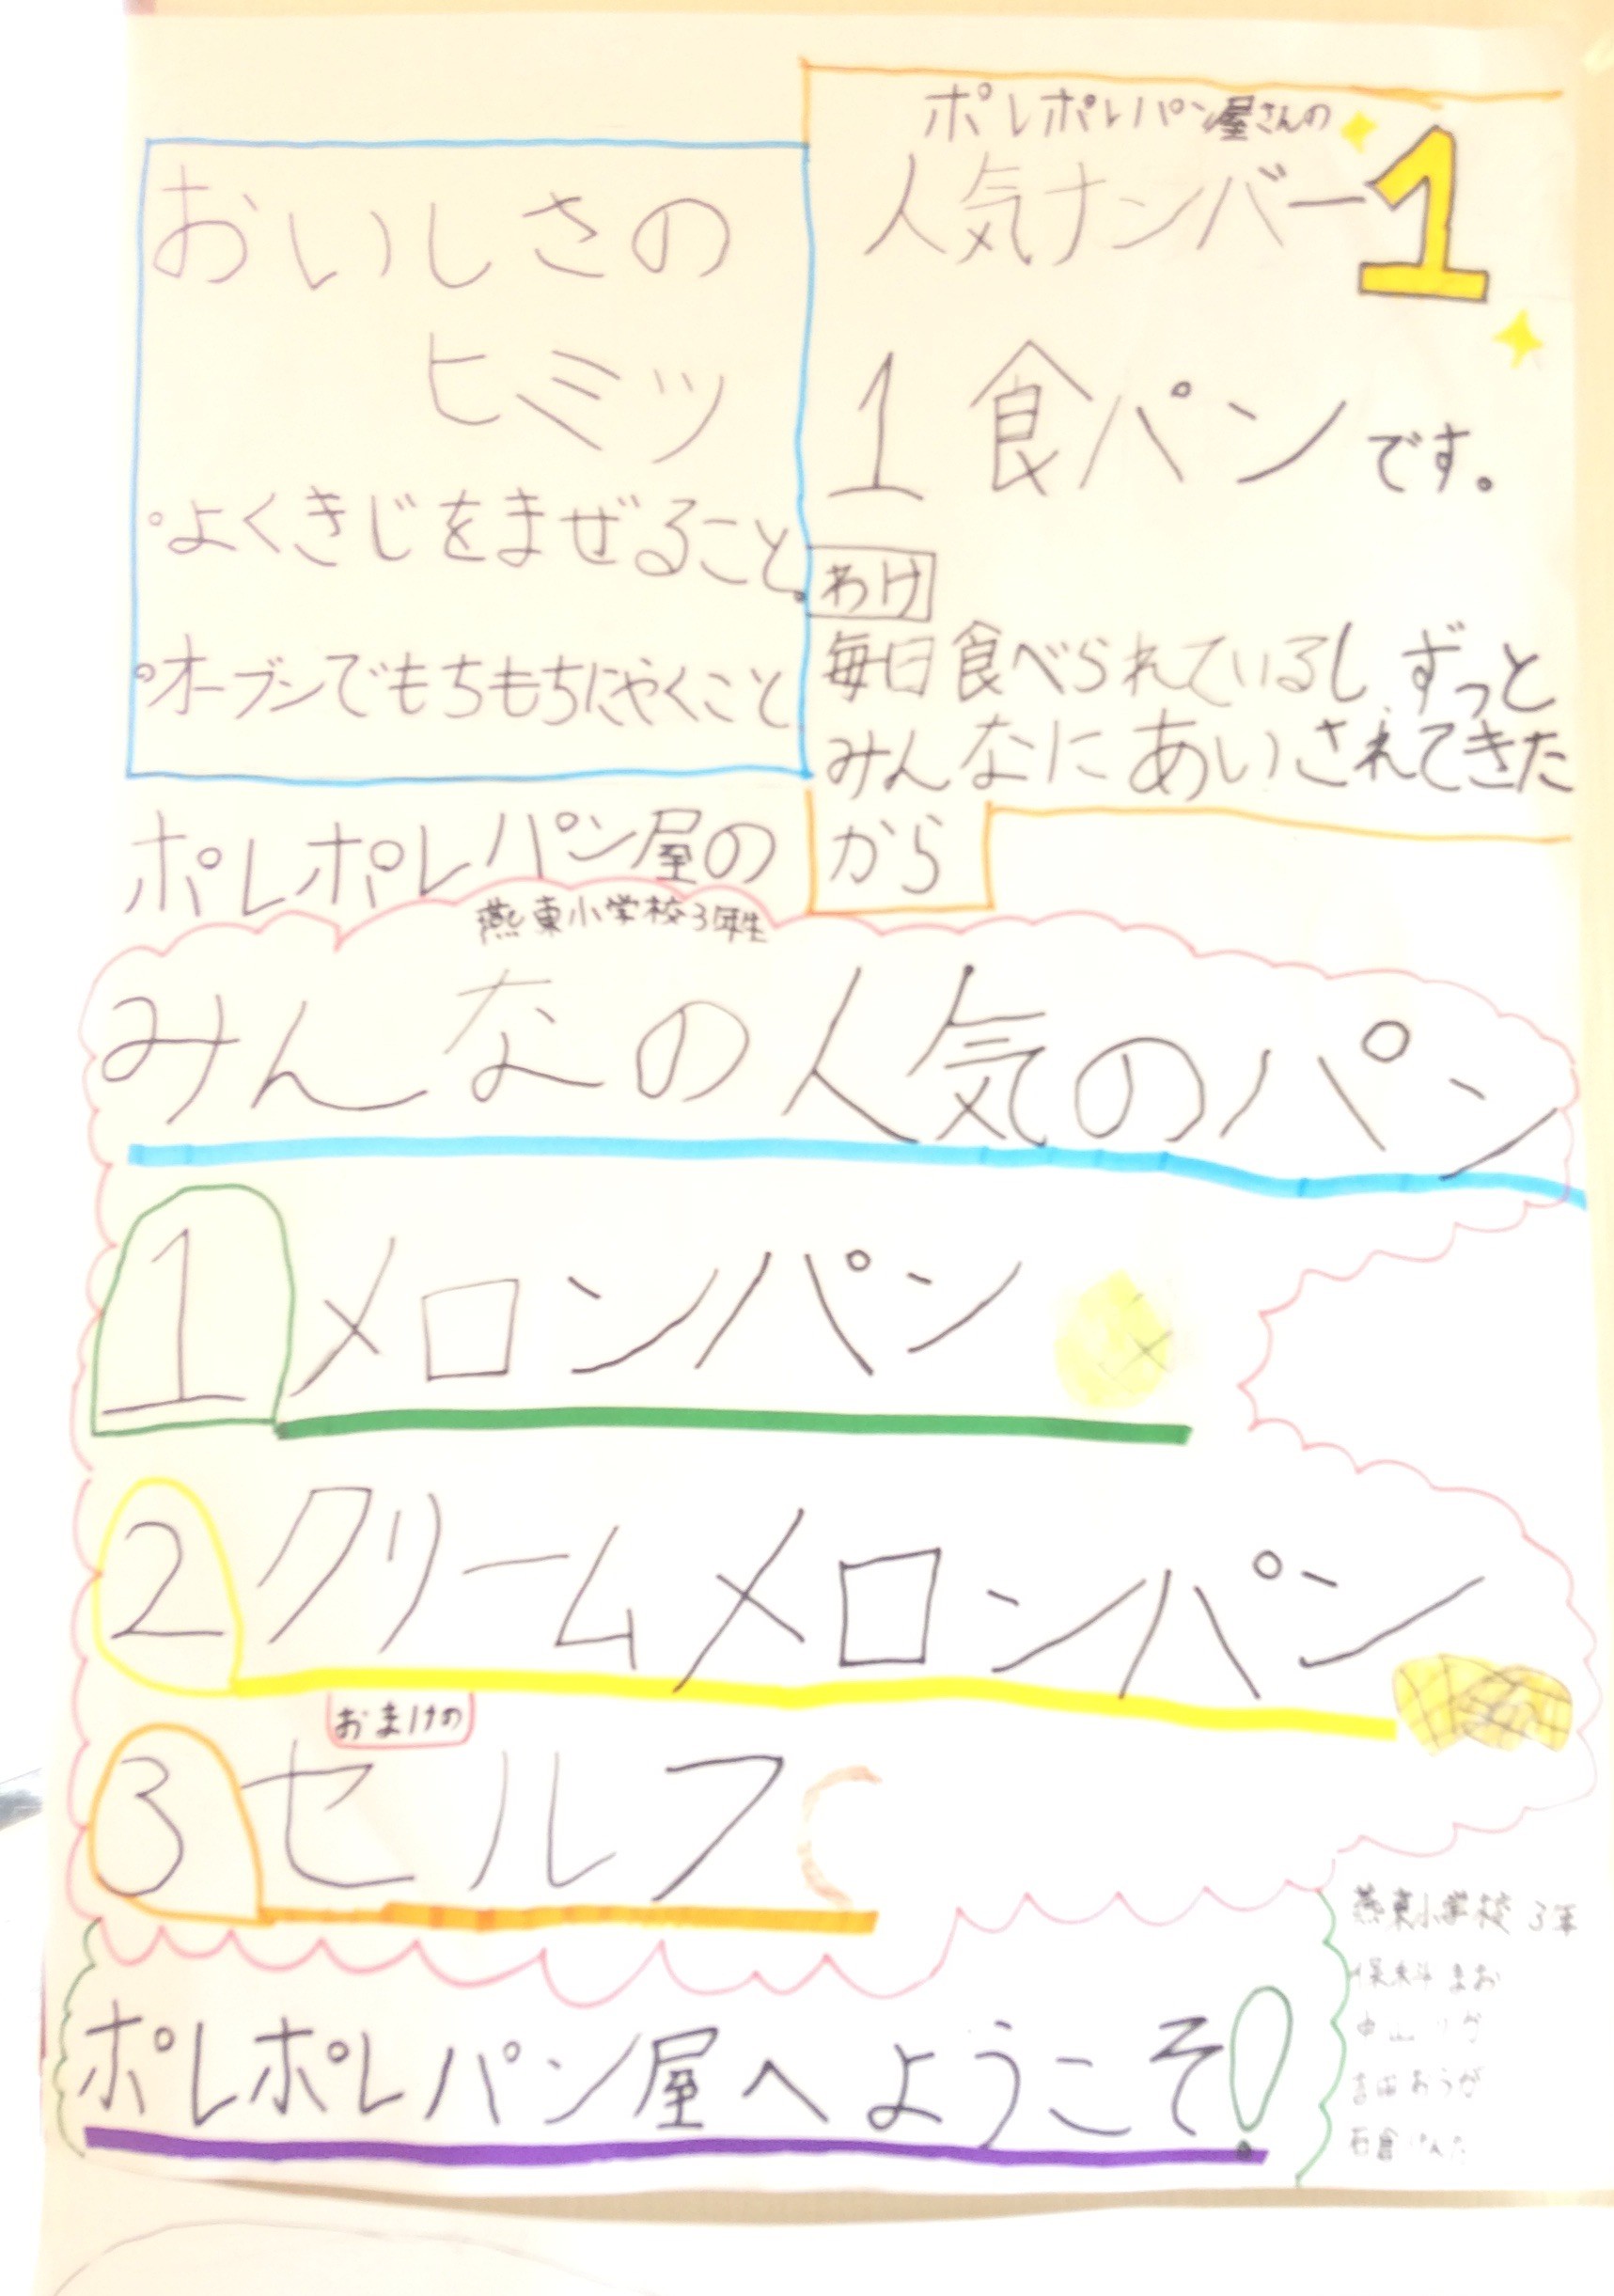 ポレポレパン屋さんの
人気ナンバー1
1 食パンです。
わけ
毎日食べられているし、ずっと
みんなにあいされてきた
から
おいしさの
ヒミツ
・よくきじをまぜること。
・オーブンでもちもちにやくこと
ポレポレパン屋の
燕東小学校3年生
みんなの人気のパン
1 メロンパン
2 クリームメロンパン
おまけの
3 セルフ
ポレポレパン屋へようこそ!
燕東小学校 3年
保科 まお
中山
吉田 おうが
石倉